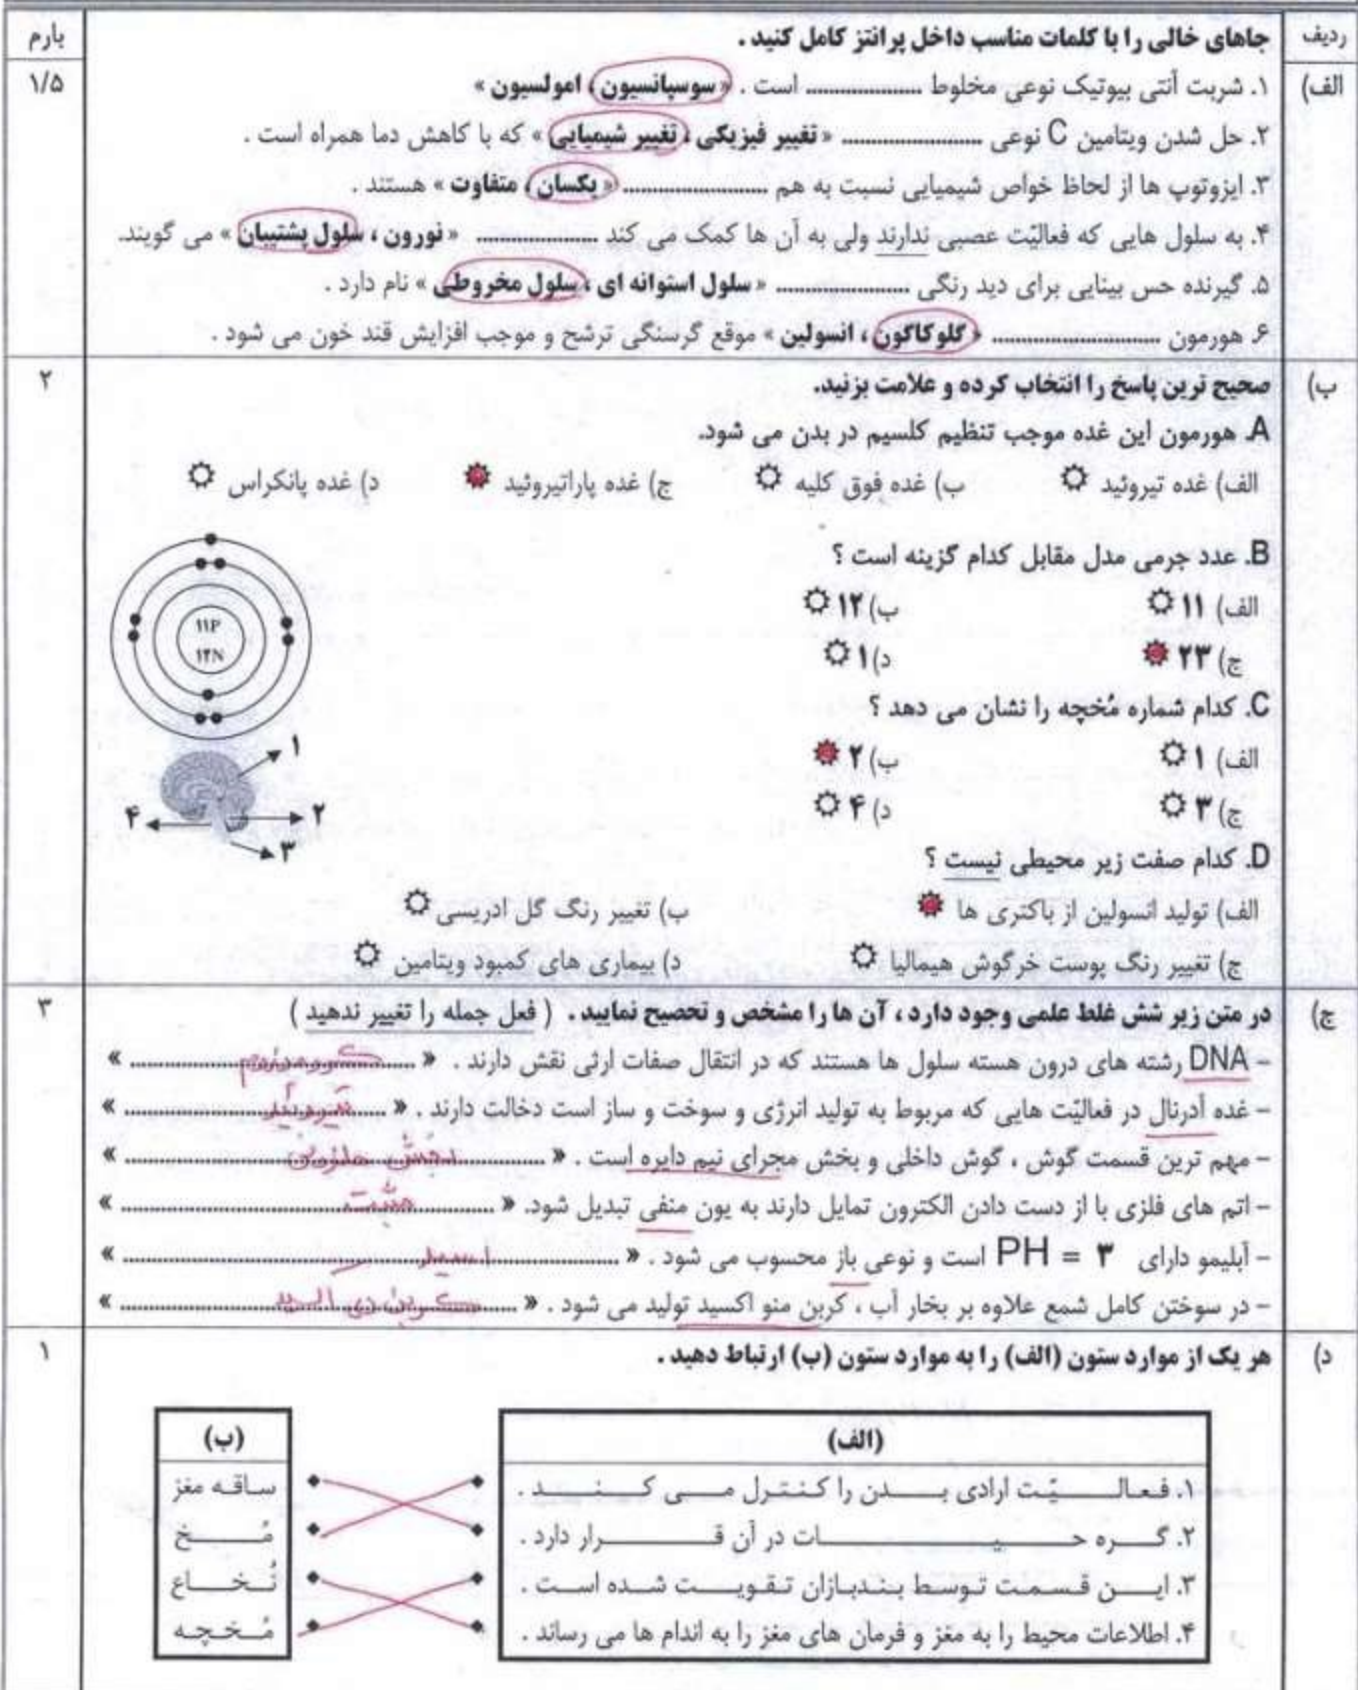 ردیف جاهای خالی را با کلمات مناسب داخل پرانتز کامل کنید . بارم
الف) ۱. شربت آنتی بیوتیک نوعی مخلوط .................... است . « سوسپانسیون ، امولسیون » ۱/۵
۲. حل شدن ویتامین C نوعی .................... « تغییر فیزیکی ، تغییر شیمیایی » که با کاهش دما همراه است .
۳. ایزوتوپ ها از لحاظ خواص شیمیایی نسبت به هم .................... « یکسان ، متفاوت » هستند .
۴. به سلول هایی که فعالیّت عصبی ندارند ولی به آن ها کمک می کند .................... « نورون ، سلول پشتیبان » می گویند.
۵. گیرنده حس بینایی برای دید رنگی .................... « سلول استوانه ای ، سلول مخروطی » نام دارد .
۶. هورمون .................... « گلوکاگون ، انسولین » موقع گرسنگی ترشح و موجب افزایش قند خون می شود .
ب) صحیح ترین پاسخ را انتخاب کرده و علامت بزنید. ۲
A. هورمون این غده موجب تنظیم کلسیم در بدن می شود.
الف) غده تیروئید ب) غده فوق کلیه ج) غده پاراتیروئید د) غده پانکراس
B. عدد جرمی مدل مقابل کدام گزینه است ؟
الف) ۱۱ ب) ۱۲
ج) ۲۳ د) ۱
۱۱P
۱۲N
C. کدام شماره مُخچه را نشان می دهد ؟
الف) ۱ ب) ۲
ج) ۳ د) ۴
۱
۲
۳
۴
D. کدام صفت زیر محیطی نیست ؟
الف) تولید انسولین از باکتری ها ب) تغییر رنگ گل ادریسی
ج) تغییر رنگ پوست خرگوش هیمالیا د) بیماری های کمبود ویتامین
ج) در متن زیر شش غلط علمی وجود دارد ، آن ها را مشخص و تحصیح نمایید . ( فعل جمله را تغییر ندهید ) ۳
- DNA رشته های درون هسته سلول ها هستند که در انتقال صفات ارثی نقش دارند . « کروموزوم »
- غده آدرنال در فعالیّت هایی که مربوط به تولید انرژی و سوخت و ساز است دخالت دارند . « تیروئید »
- مهم ترین قسمت گوش ، گوش داخلی و بخش مجرای نیم دایره است . « بخش حلزونی »
- اتم های فلزی با از دست دادن الکترون تمایل دارند به یون منفی تبدیل شود. « مثبت »
- آبلیمو دارای PH = ۳ است و نوعی باز محسوب می شود . « اسید »
- در سوختن کامل شمع علاوه بر بخار آب ، کربن منو اکسید تولید می شود . « کربن دی اکسید »
د) هر یک از موارد ستون (الف) را به موارد ستون (ب) ارتباط دهید . ۱
(الف) (ب)
۱. فعالیّت ارادی بدن را کنترل می کند . ساقه مغز
۲. گره حیات در آن قرار دارد . مُخ
۳. این قسمت توسط بندبازان تقویت شده است . نُخاع
۴. اطلاعات محیط را به مغز و فرمان های مغز را به اندام ها می رساند . مُخچه